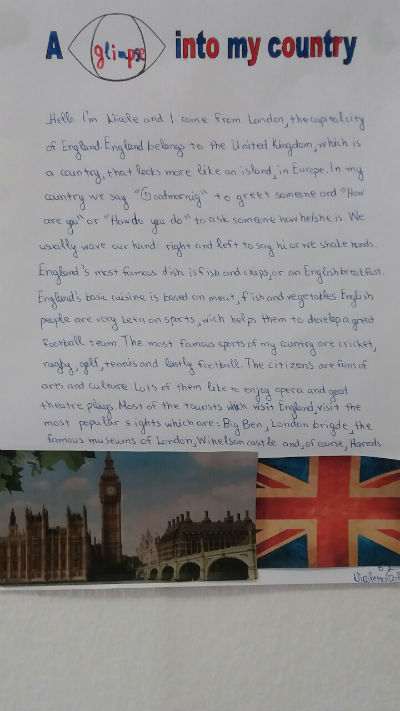 A glimpse into my country
Hello I'm Nicole and I come from London, the capital city
of England. England belongs to the United Kingdom, which is
a country, that looks more like an island, in Europe. In my
country we say "Goodmornig" to greet someone and "How
are you" or "How do you do" to ask someone how he/she is. We
usually wave our hand right and left to say hi or we shake hands.
England's most famous dish is fish and chips, or an English breakfast.
England's basic cuisine is based on meat, fish and vegetables English
people are very keen on sports, wich helps them to develop a great
football team. The most famous sports of my country are cricket,
rugby, golf, tennis and lastly football. The citizens are fans of
arts and culture. Lots of them like to enjoy opera and good
theatre plays. Most of the tourists which visit England, visit the
most popular sights which are: Big Ben, London brigde, the
famous museums of London, castle and, of course, Harrods